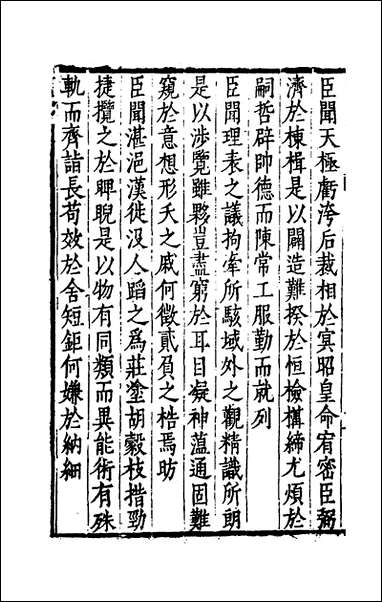 臣聞天極虧洿后裁相於寅昭皇命宥密臣弼
濟於棟楫是以闢造難揆於恒檢構締尤煩於
嗣哲辟帥德而陳常工服勤而就列
臣聞理表之議拘牽所駭域外之觀精識所朗
是以涉覽雖夥豈盡窮於耳目凝神薀通固難
窺於意想形夭之戚何徵貳負之梏焉昉
臣聞湛浥漢徙沒人蹈之為莊塗胡縠枝揩勁
捷攬之於睥睨是以物有同類而異能術有殊
軌而齊詣長苟效於舍短鉅何嫌於納細